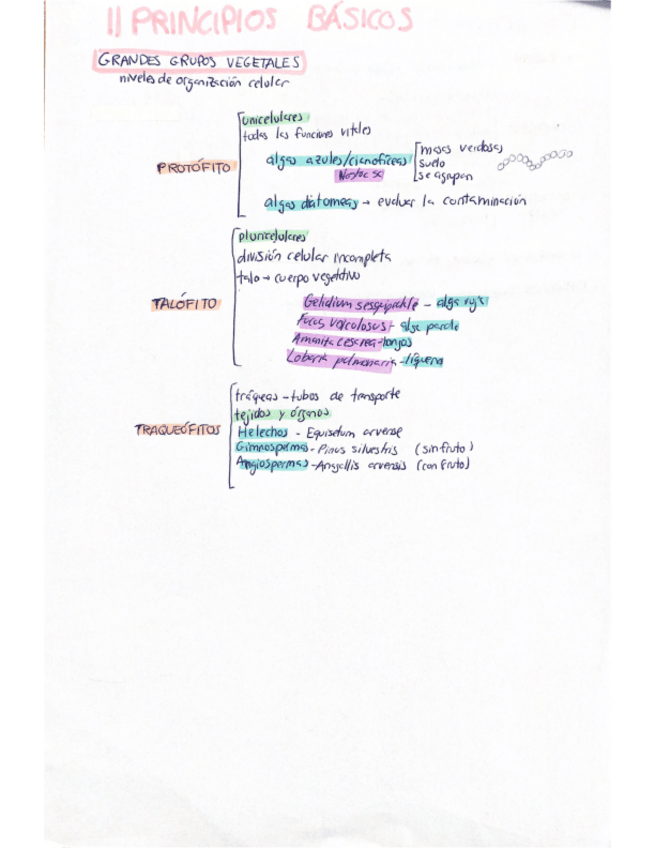 11 PRINCIPIOS BÁSICOS
GRANDES GRUPOS VEGETALES
niveles de organización celular
PROTÓFITO
unicelulares
todas las funciones vitales
algas azules/cianofíceas
Nostoc sc
masas verdosas
suelo
se agrupan
algas diatomeas → evaluar la contaminación
TALÓFITO
pluricelulares
división celular incompleta
talo → cuerpo vegetativo
Gelidium - alga roja
Fucus - alga parda
Amanita cesarea - hongos
Lobaria pulmonaria - líquena
TRAQUEÓFITOS
tráqueas - tubos de transporte
tejidos y órganos
Helechos - Equisetum arvense
Gimnospermas - Pinus silvestris (sin fruto)
Angiospermas - Anagallis arvensis (con fruto)